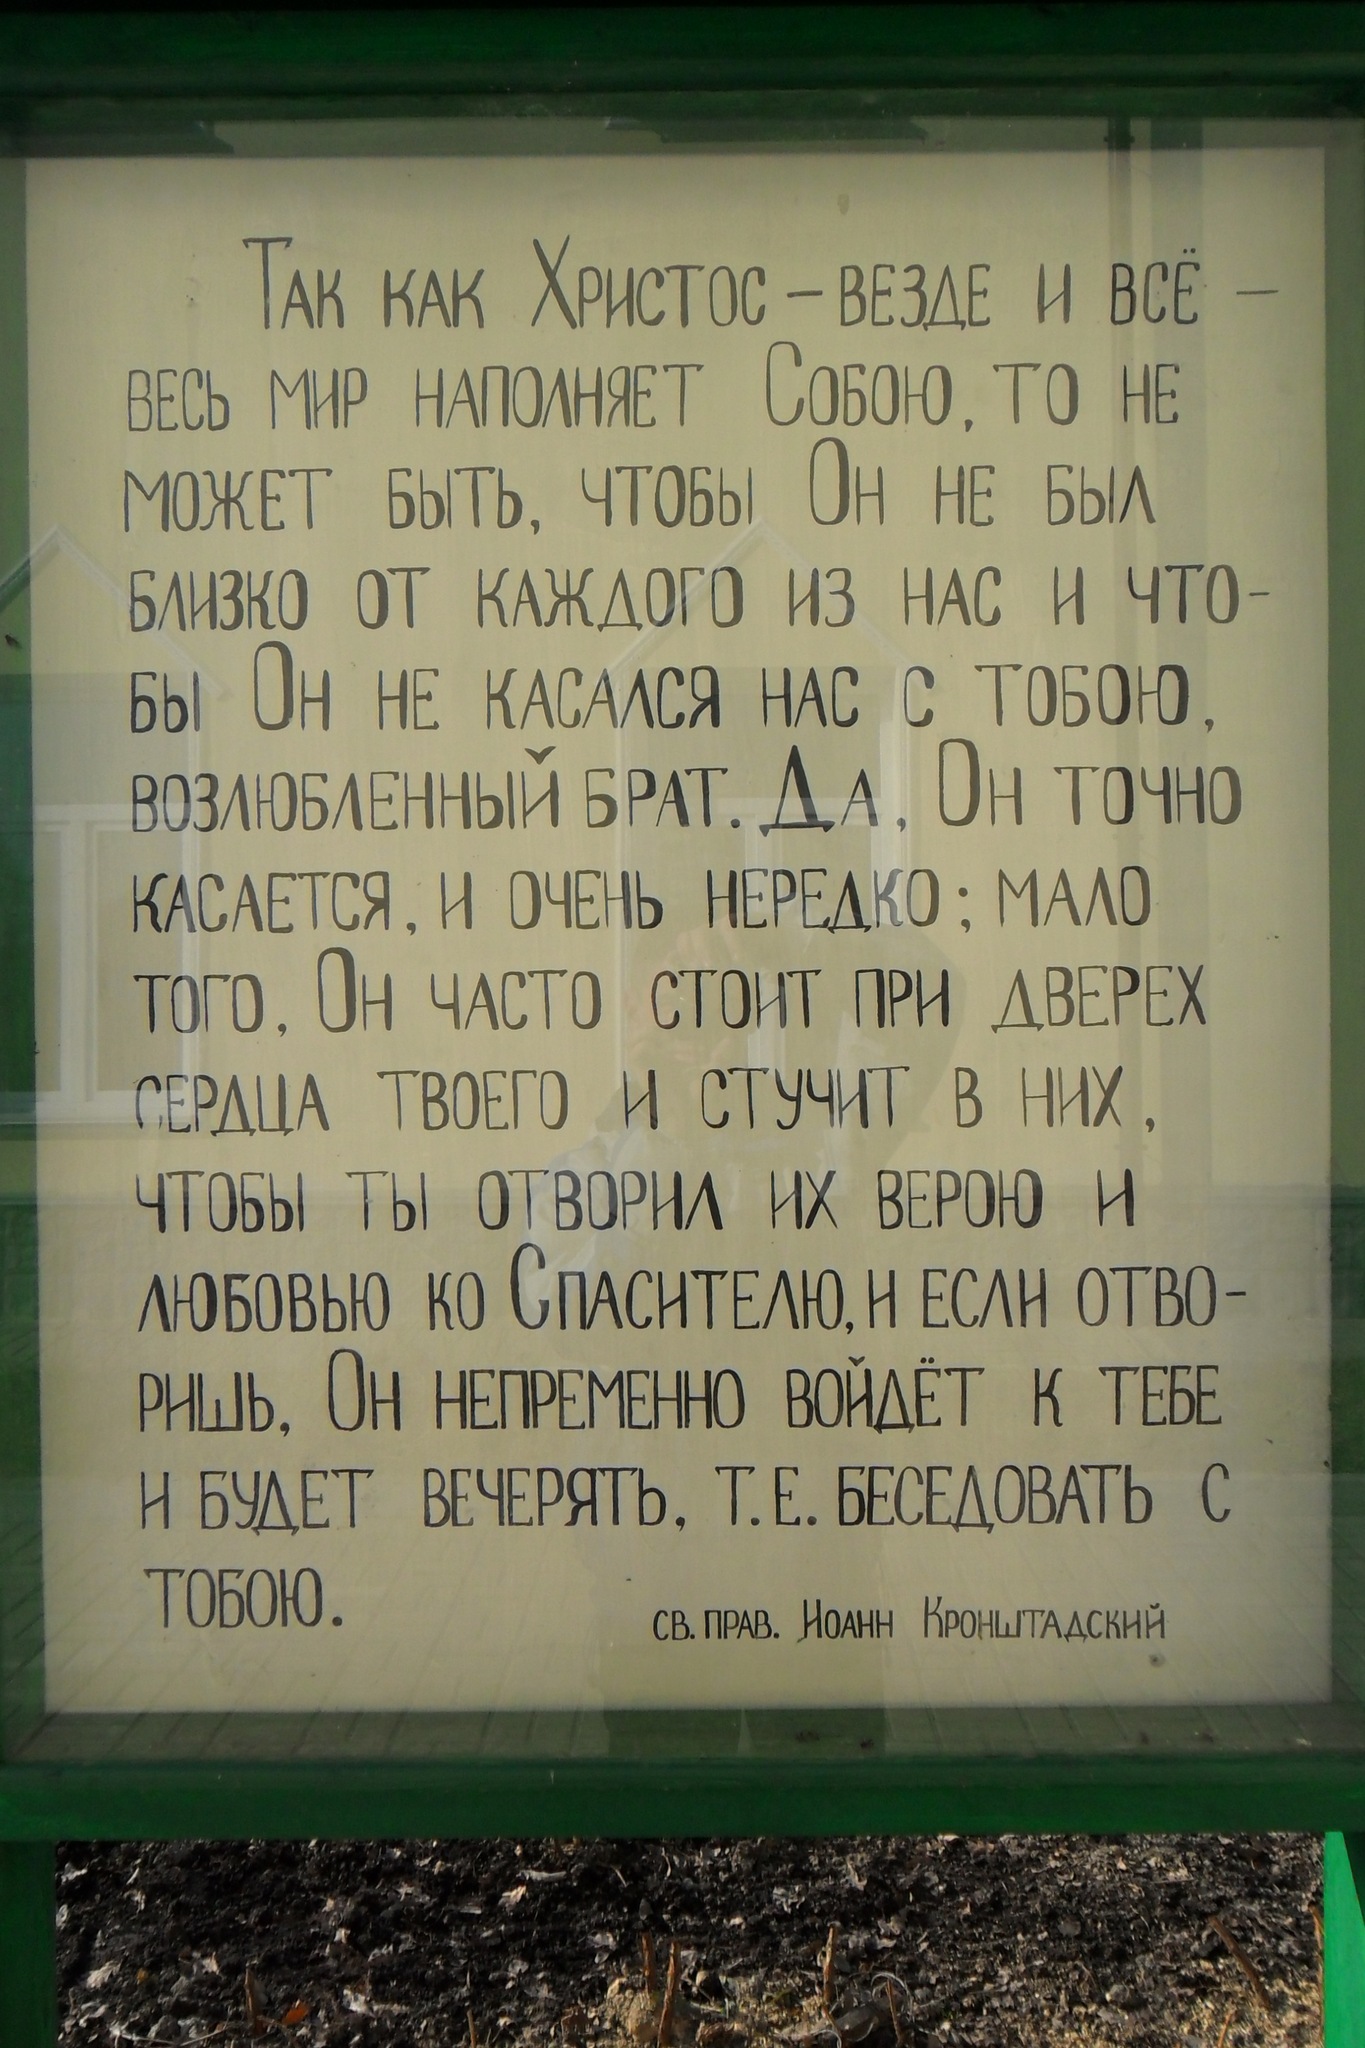 Так как Христос – везде и всё –
весь мир наполняет Собою, то не
может быть, чтобы Он не был
близко от каждого из нас и что-
бы Он не касался нас с тобою,
возлюбленный брат. Да, Он точно
касается, и очень нередко; мало
того, Он часто стоит при дверех
сердца твоего и стучит в них,
чтобы ты отворил их верою и
любовью ко Спасителю, и если отво-
ришь, Он непременно войдёт к тебе
и будет вечерять, т.е. беседовать с
тобою.
св. прав. Иоанн Кронштадский